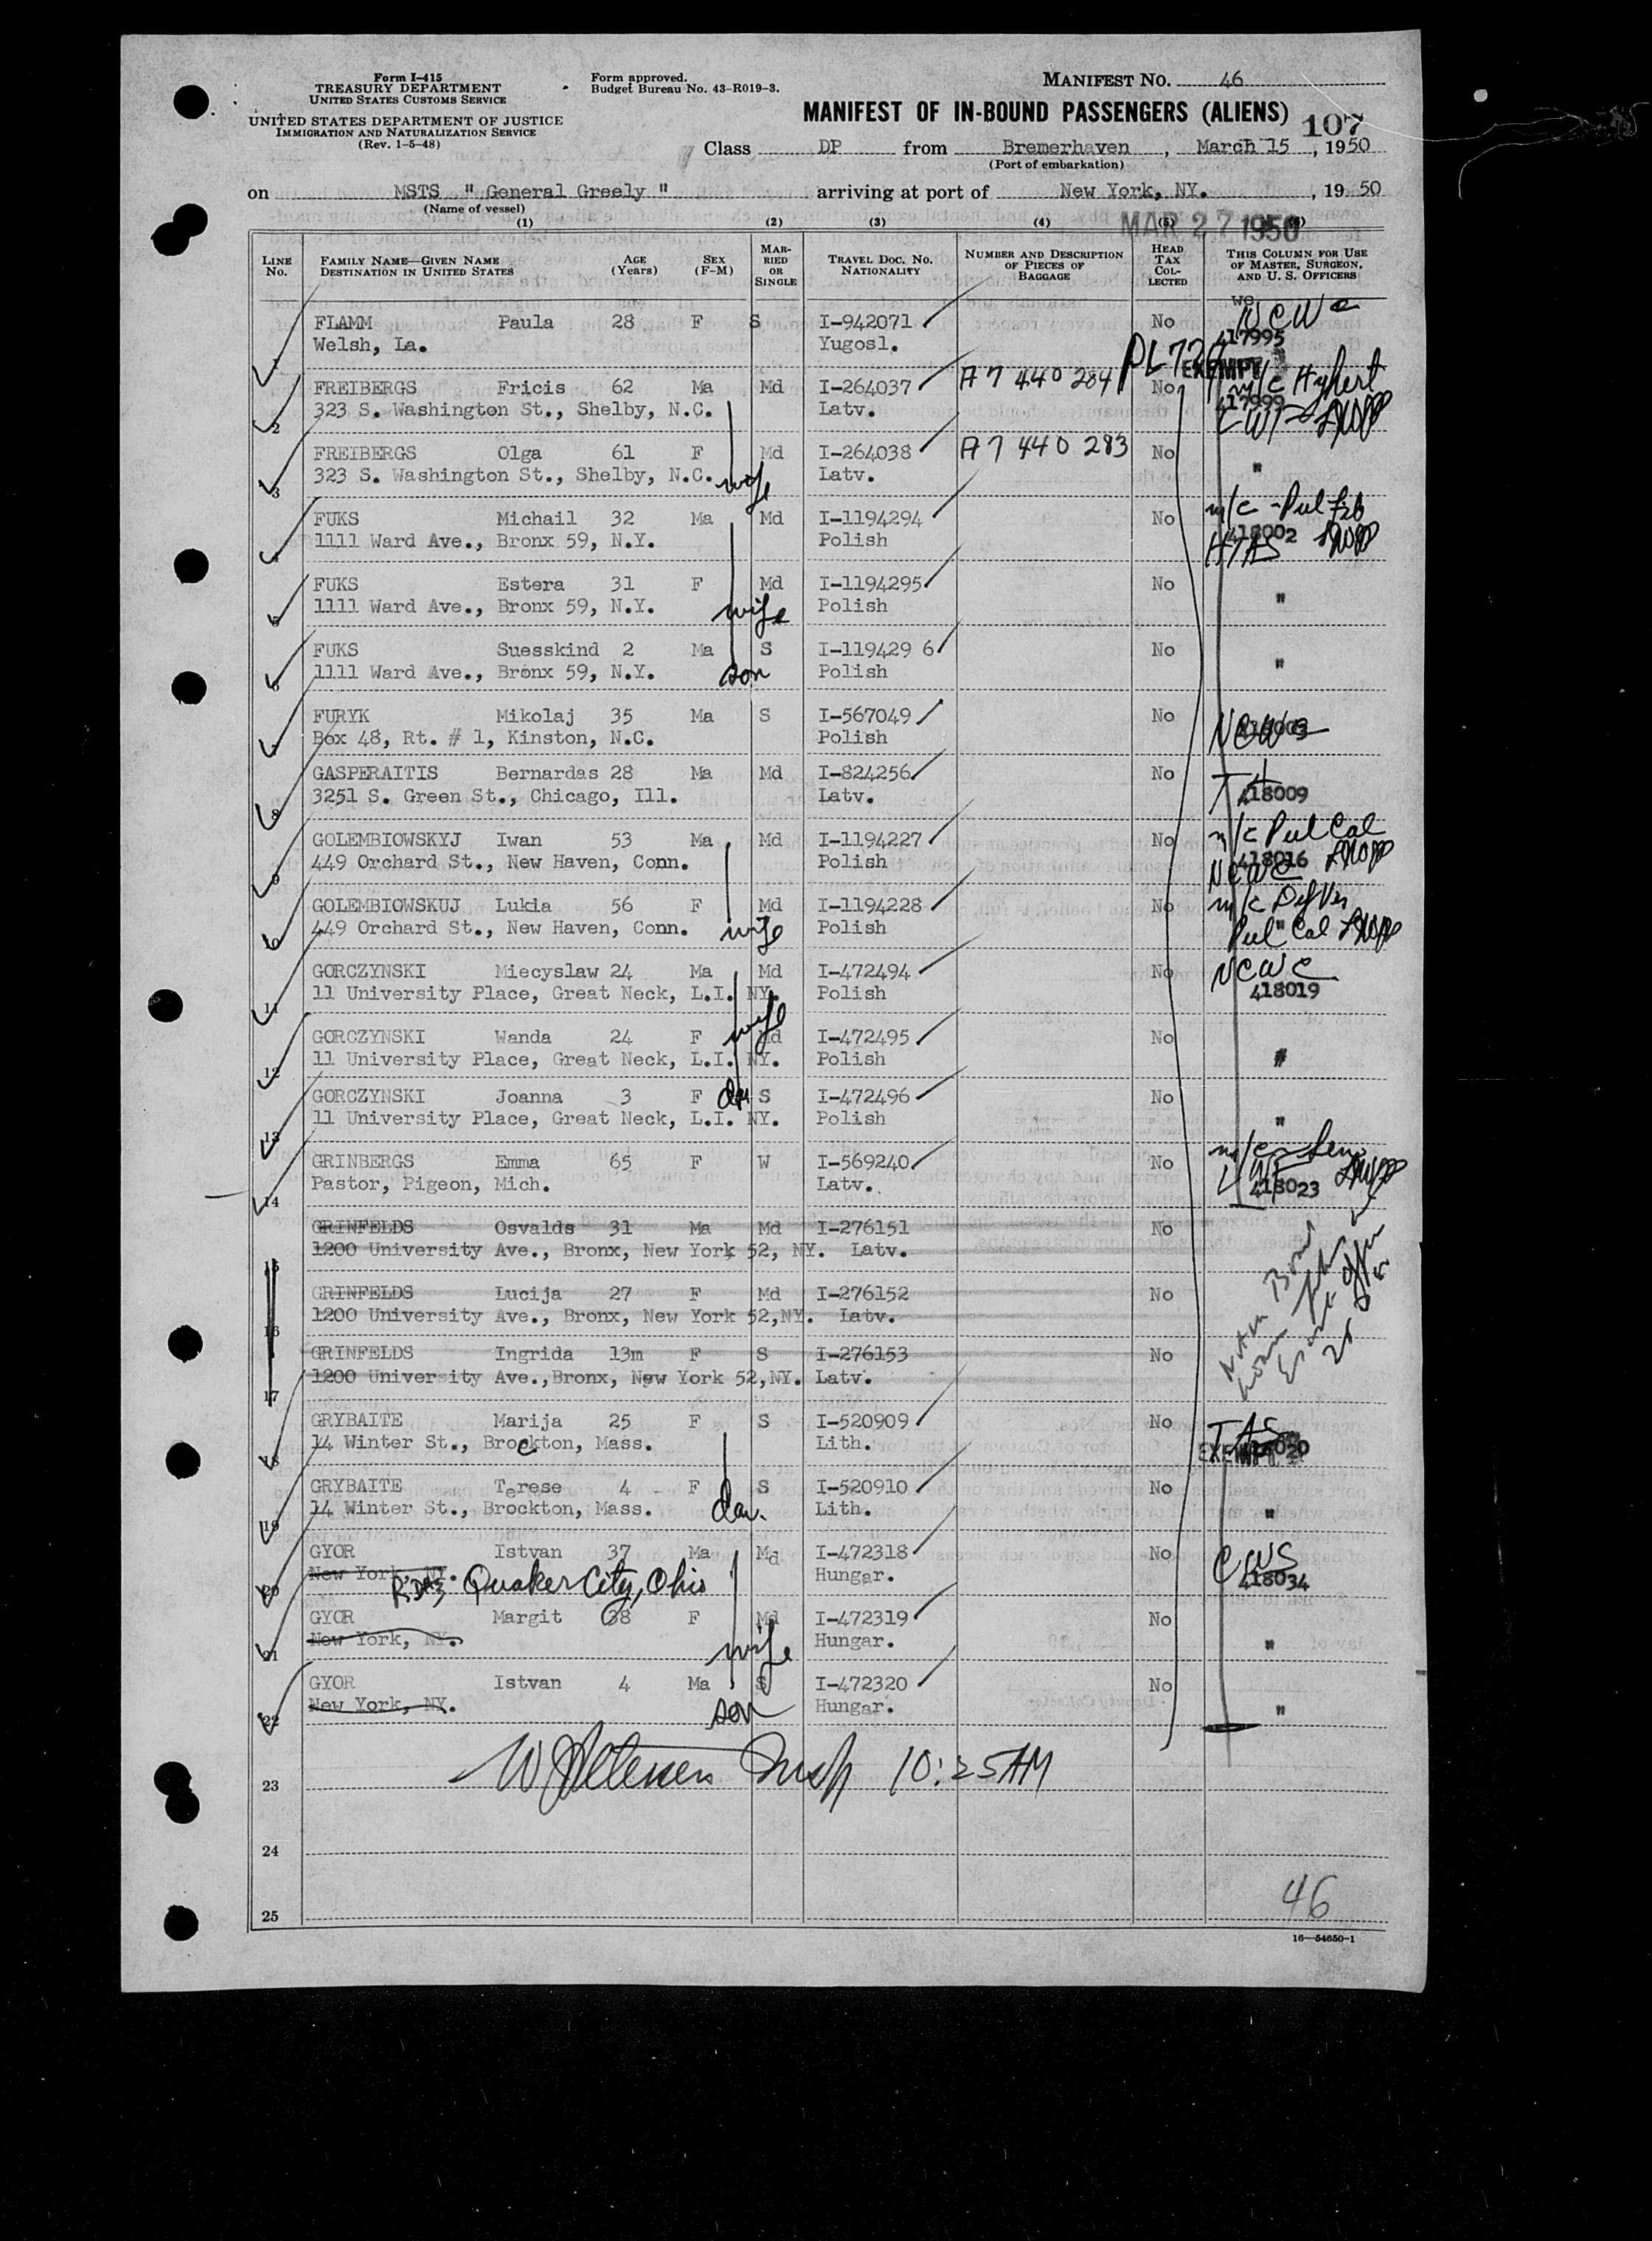 Form I-415
TREASURY DEPARTMENT
UNITED STATES CUSTOMS SERVICE
UNITED STATES DEPARTMENT OF JUSTICE
IMMIGRATION AND NATURALIZATION SERVICE
(Rev. 1-5-48)
Form approved.
Budget Bureau No. 43-R019-3.
MANIFEST NO. 46
MANIFEST OF IN-BOUND PASSENGERS (ALIENS) 107
Class DP from Bremerhaven, March 15, 1950
(Port of embarkation)
on MSTS " General Greely " arriving at port of New York, NY., 1950
(Name of vessel)
MAR 27 1950
(1) (2) (3) (4) (5) (6)
LINE NO. FAMILY NAME—GIVEN NAME DESTINATION IN UNITED STATES AGE (Years) SEX (F-M) MARRIED OR SINGLE TRAVEL DOC. NO. NATIONALITY NUMBER AND DESCRIPTION OF PIECES OF BAGGAGE HEAD TAX COLLECTED THIS COLUMN FOR USE OF MASTER, SURGEON, AND U. S. OFFICERS
FLAMM Paula 28 F S I-942071 No NCWC
1 Welsh, La. Yugosl. 417995
EXEMPT
FREIBERGS Fricis 62 Ma Md I-264037 A7 440 284 No m/c
2 323 S. Washington St., Shelby, N.C. Latv. 417999
FREIBERGS Olga 61 F Md I-264038 A7 440 283 No
3 323 S. Washington St., Shelby, N.C. wife Latv. "
FUKS Michail 32 Ma Md I-1194294 No m/c
4 1111 Ward Ave., Bronx 59, N.Y. Polish 418002 HIAS
FUKS Estera 31 F Md I-1194295 No
5 1111 Ward Ave., Bronx 59, N.Y. wife Polish "
FUKS Suesskind 2 Ma S I-119429 6 No
6 1111 Ward Ave., Bronx 59, N.Y. son Polish "
FURYK Mikolaj 35 Ma S I-567049 No
7 Box 48, Rt. # 1, Kinston, N.C. Polish NCWC
GASPERAITIS Bernardas 28 Ma Md I-824256 No
8 3251 S. Green St., Chicago, Ill. Latv. 418009
GOLEMBIOWSKYJ Iwan 53 Ma Md I-1194227 No m/c Pul Cal
9 449 Orchard St., New Haven, Conn. Polish 418016 NCWC
GOLEMBIOWSKUJ Lukia 56 F Md I-1194228 No m/c Def Vis
10 449 Orchard St., New Haven, Conn. wife Polish Pul " Cal
GORCZYNSKI Miecyslaw 24 Ma Md I-472494 No NCWC
11 11 University Place, Great Neck, L.I. NY. Polish 418019
GORCZYNSKI Wanda 24 F wife Md I-472495 No
12 11 University Place, Great Neck, L.I. NY. Polish "
GORCZYNSKI Joanna 3 F dau S I-472496 No
13 11 University Place, Great Neck, L.I. NY. Polish "
GRINBERGS Emma 65 F W I-569240 No m/c
14 Pastor, Pigeon, Mich. Latv. 418023
GRINFELDS Osvalds 31 Ma Md I-276151 No
15 1200 University Ave., Bronx, New York 52, NY. Latv.
GRINFELDS Lucija 27 F Md I-276152 No
16 1200 University Ave., Bronx, New York 52,NY. Latv.
GRINFELDS Ingrida 13m F S I-276153 No
17 1200 University Ave.,Bronx, New York 52,NY. Latv.
GRYBAITE Marija 25 F S I-520909 No
18 14 Winter St., Brockton, Mass. Lith. EXEMPT
GRYBAITE Terese 4 F S I-520910 No
19 14 Winter St., Brockton, Mass. dau. Lith. "
GYOR Istvan 37 Ma Md I-472318 No CWS
20 New York, NY. Quaker City, Ohio Hungar. 418034
GYOR Margit 38 F Md I-472319 No
21 New York, NY. wife Hungar. "
GYOR Istvan 4 Ma S I-472320 No
22 New York, NY. son Hungar. "
Insp 10:25AM
23
24
25
46
16—54650-1